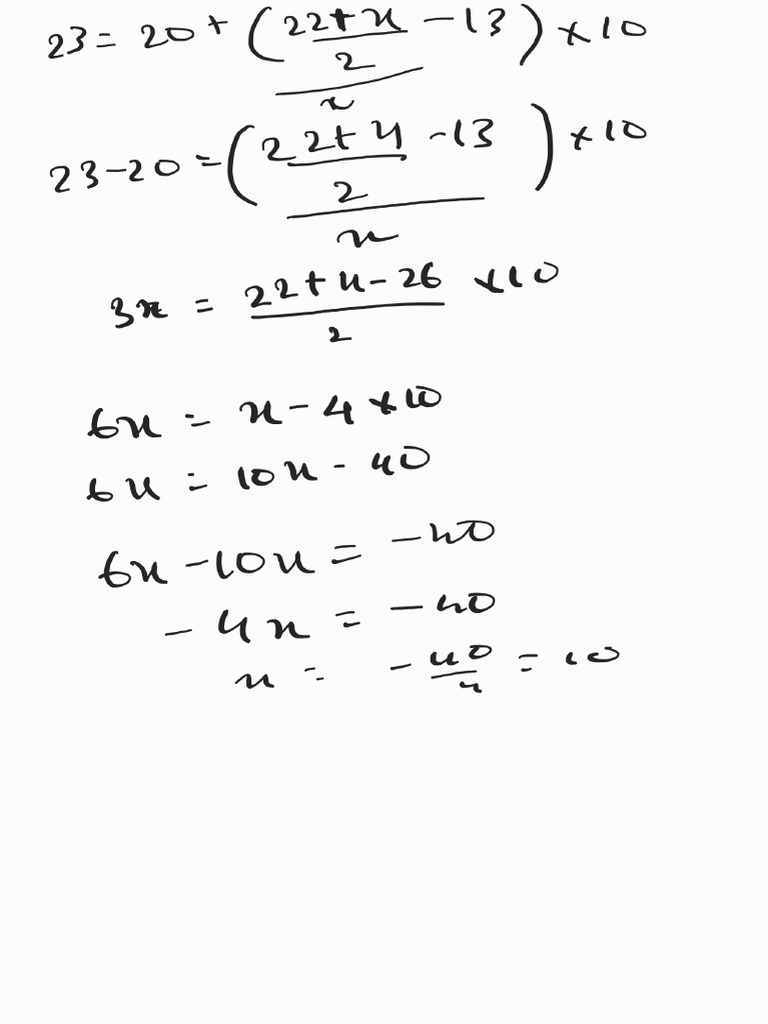 23 = 20 + ( ( (22 + x)/2 - 13 ) / x ) × 10
23 - 20 = ( ( (22 + x)/2 - 13 ) / x ) × 10
3x = (22 + x - 26)/2 × 10
6x = x - 4 × 10
6x = 10x - 40
6x - 10x = -40
- 4x = - 40
x = - 40/4 = 10